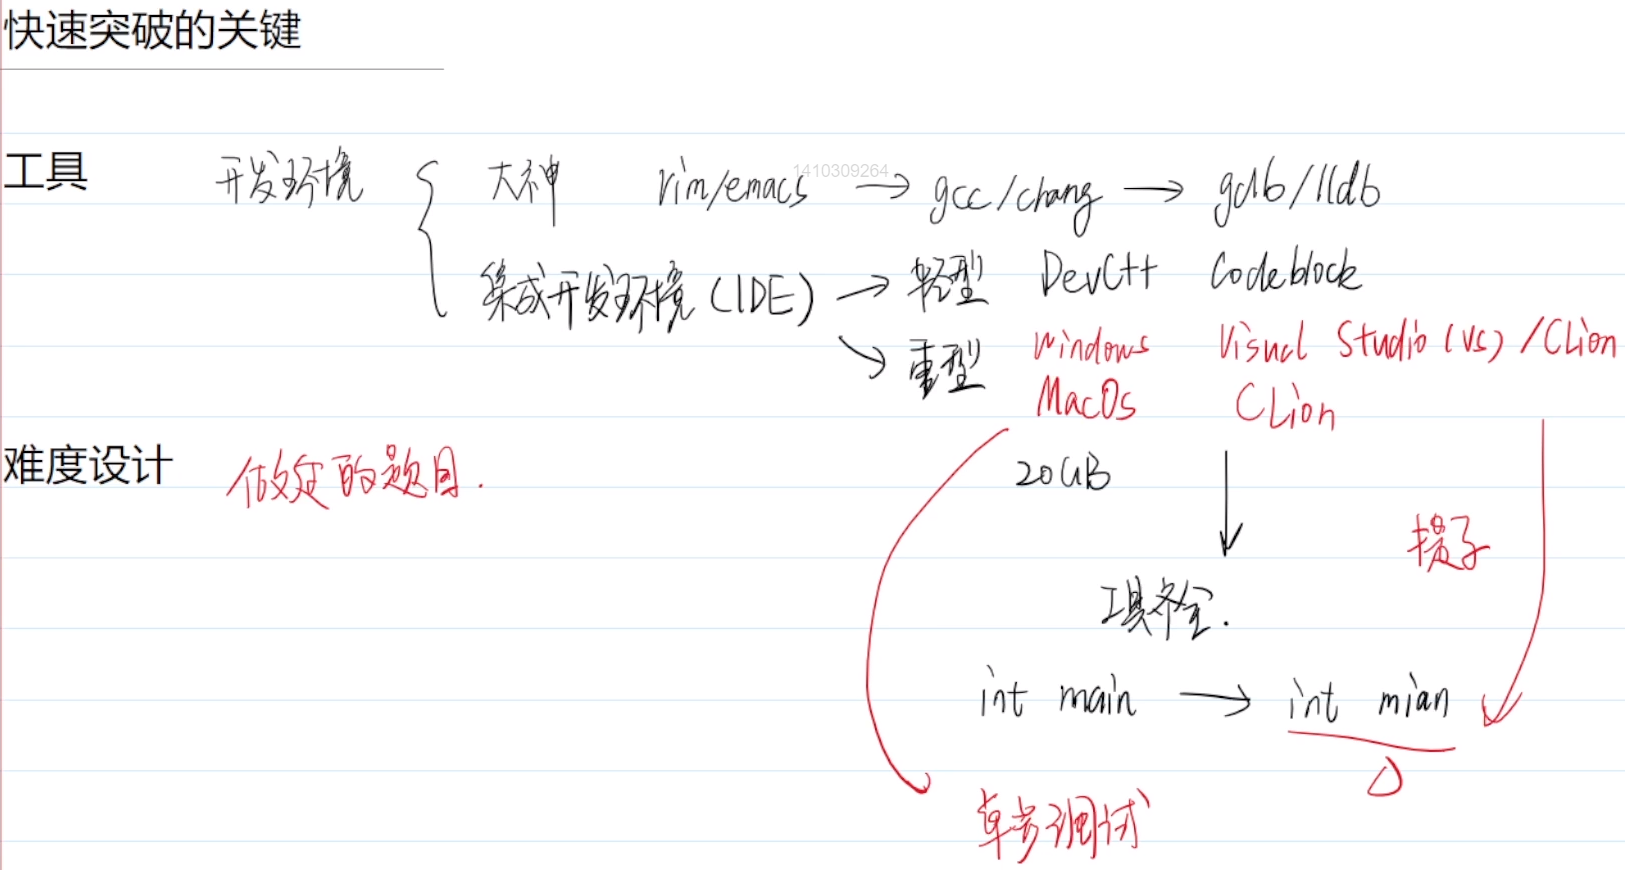 快速突破的关键
工具 开发环境 { 大神 vim/emacs → gcc/chang → gdb/lldb
1410309264
集成开发环境(IDE) → 轻型 DevC++ Codeblock
↘ 重型 Windows Visual Studio (VS) /CLion
MacOs CLion
难度设计 做定的题目.
20GB
提示
工具齐全.
int main → int mian
单步调试